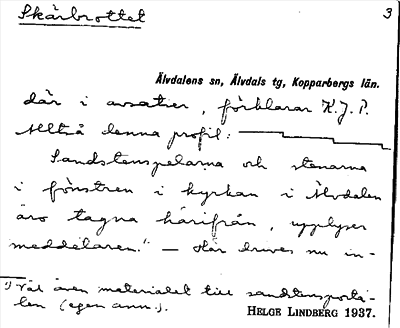 Skärbrottet 3
Älvdalens sn, Älvdals tg, Kopparbergs län.
där i avsatser, förklarar K.J.P.
Alltså denna profil:
Sandstenspelarna och stenarna
i fönstren i kyrkan i Älvdalen
äro tagna härifrån, upplyser
meddelaren.¹⁾ — Här drives nu in-
¹⁾ Väl även materialet till sandstensportä-
len (egen anm.).
HELGE LINDBERG 1937.